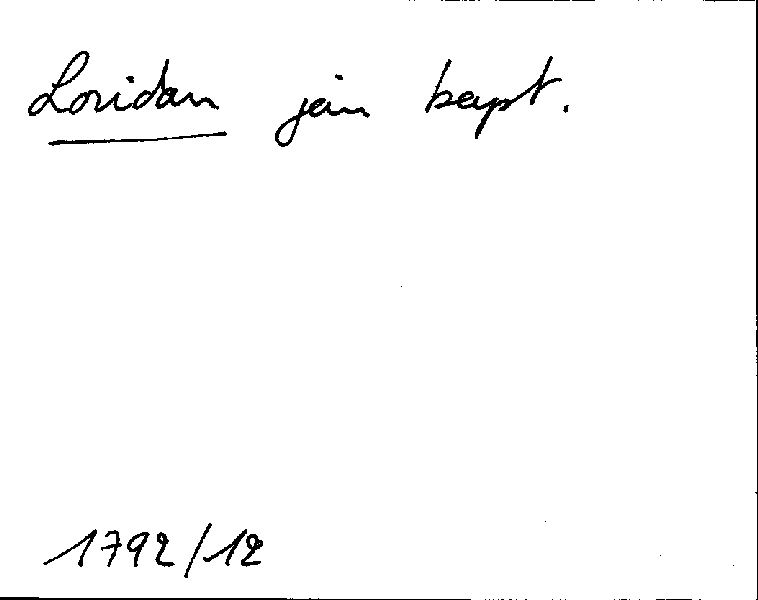 Loridan jean bapt.
1792/12